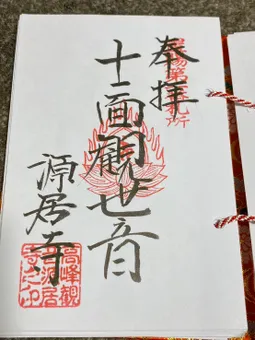 奉拝
十一面観世音
源居寺
高峰観
音源居
寺之印